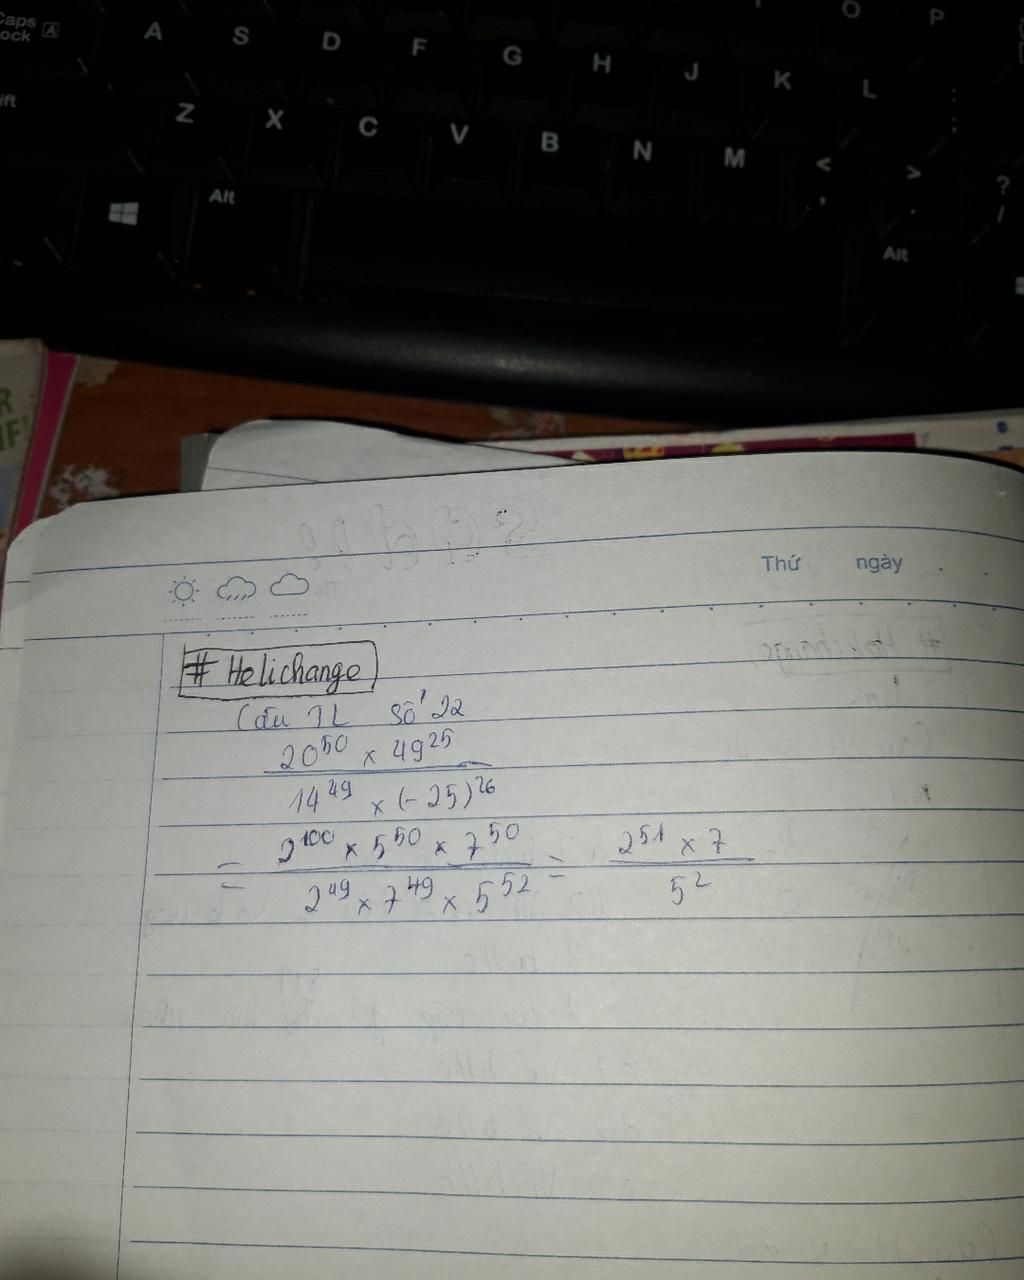 Caps Lock A A S D F G H J K L O P
Z X C V B N M < , > . ? /
Alt Alt
Thứ ngày
# Helichange
Câu TL Số 22
20^50 × 49^25
14^49 × (-25)^26
= 2^100 × 5^50 × 7^50 / 2^49 × 7^49 × 5^52 = 2^51 × 7 / 5^2